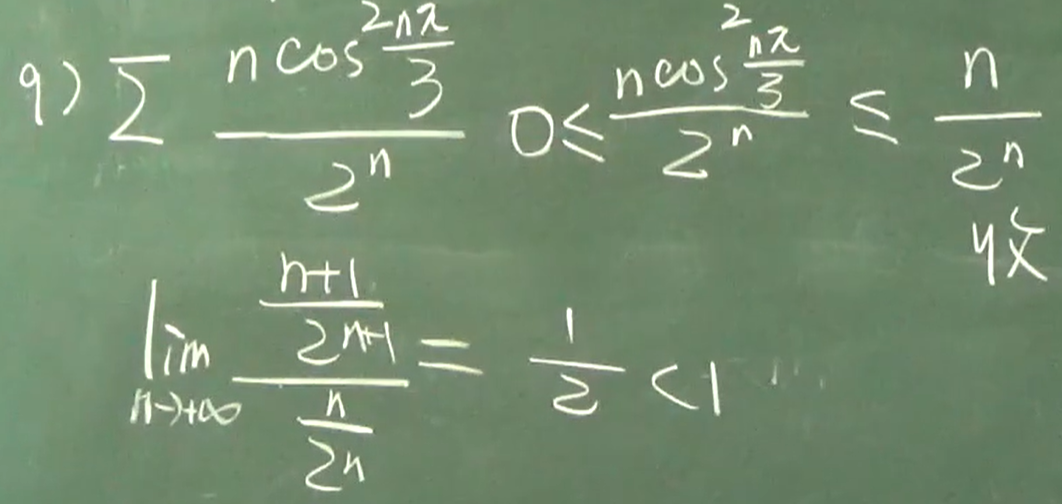 9) ∑ \frac{n cos^2 \frac{nπ}{3}}{2^n} 0 ≤ \frac{n cos^2 \frac{nπ}{3}}{2^n} ≤ \frac{n}{2^n}
收
\lim_{n→+∞} \frac{\frac{n+1}{2^{n+1}}}{\frac{n}{2^n}} = \frac{1}{2} < 1